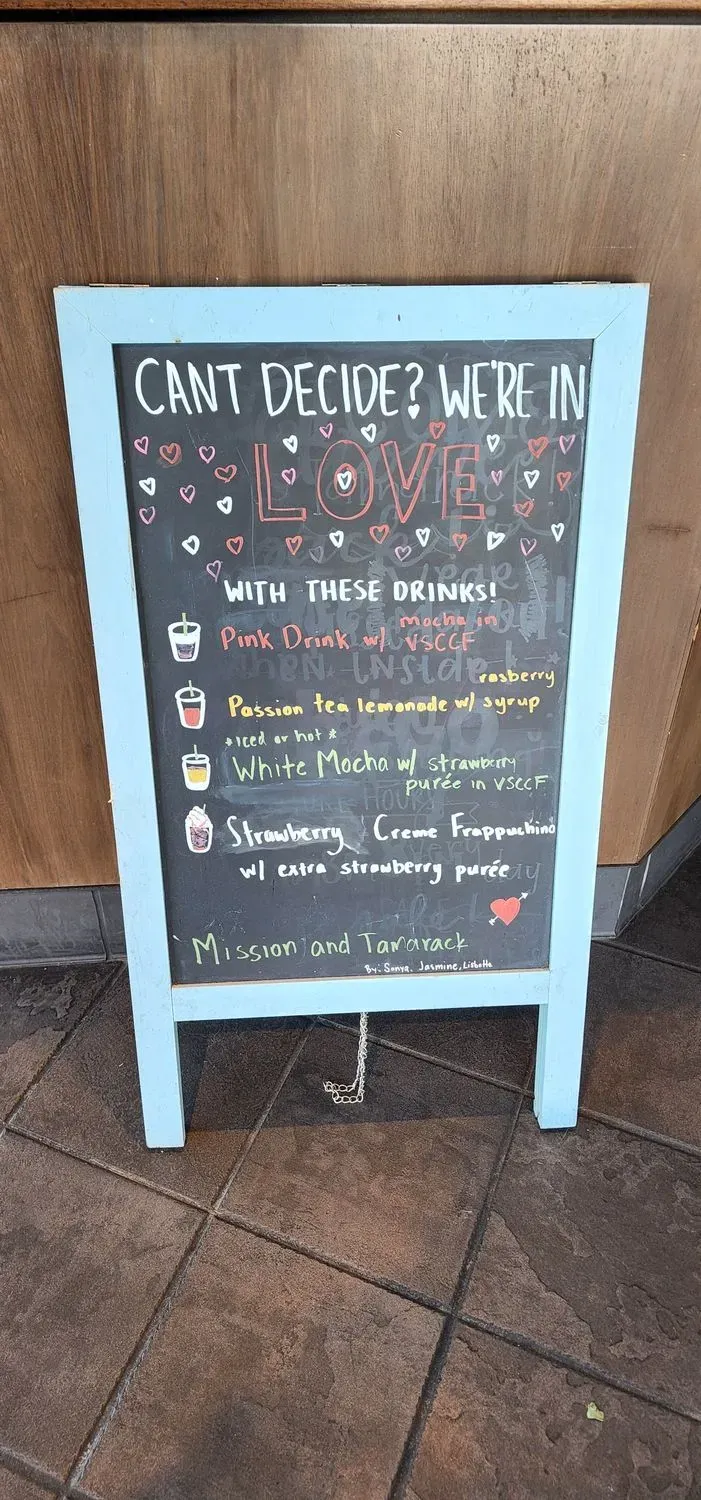 CANT DECIDE? WE'RE IN
LOVE
WITH THESE DRINKS!
Pink Drink w/ mocha in VSCCF
Passion tea lemonade w/ rasberry syrup
*iced or hot*
White Mocha w/ strawberry
purée in VSCCF
Strawberry Creme Frappuchino
w/ extra strawberry purée
Mission and Tamarack
By: Sonya, Jasmine, Lisbette